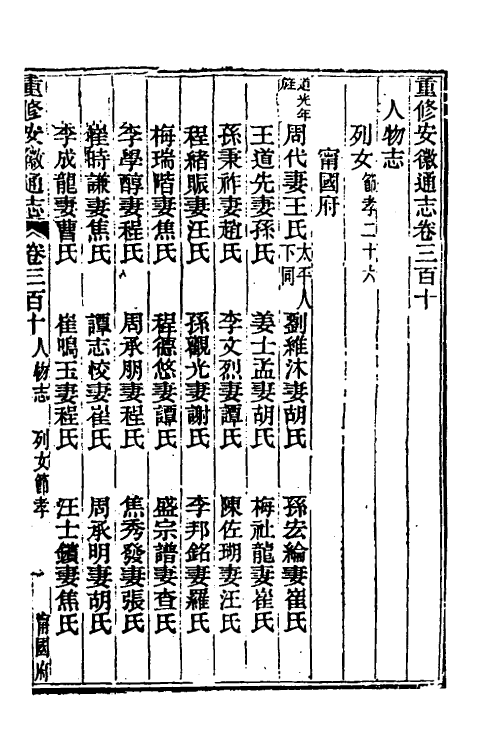 重修安徽通志卷三百十
人物志
列女節孝二十六
甯國府
道光年旌 周代妻王氏太平人下同 劉維沐妻胡氏 孫宏綸妻崔氏
王道先妻孫氏 姜士孟妻胡氏 梅社龍妻崔氏
孫秉祚妻趙氏 李文烈妻譚氏 陳佐瑚妻汪氏
程緒賑妻汪氏 孫觀光妻謝氏 李邦銘妻羅氏
梅瑞階妻焦氏 程德悠妻譚氏 盛宗譜妻查氏
李學醇妻程氏 周承朋妻程氏 焦秀發妻張氏
崔時謙妻焦氏 譚志恔妻崔氏 周承明妻胡氏
李成龍妻曹氏 崔鳴玉妻程氏 汪士鑽妻焦氏
重修安徽通志 卷三百十 人物志 列女節孝 一 甯國府